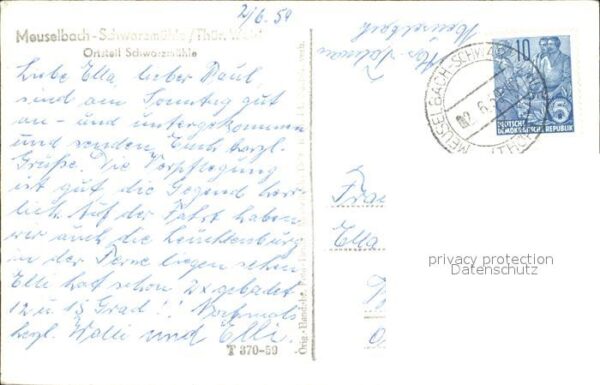 2/6. 59
Meuselbach-Schwarzmühle/Thür. Wald
Ortsteil Schwarzmühle
Liebe Ella, lieber Paul,
sind am Sonntag gut
an- und untergekommen
und senden Euch herzl.
Grüße. Die Verpflegung
ist gut die Gegend herr-
lich. Auf der Fahrt haben
wir auch die Leuchtenburg
in der Ferne liegen sehen
Elli hat schon 2x gebadet
12 u 15 Grad!! Nochmals
herzl. Walli und Elli.
T 370-59
Meuselbach
MEUSELBACH-SCHWARZ
(THÜR
10
DEUTSCHE
DEMOKRATISCHE REPUBLIK
Frau
Ella
privacy protection
Datenschutz